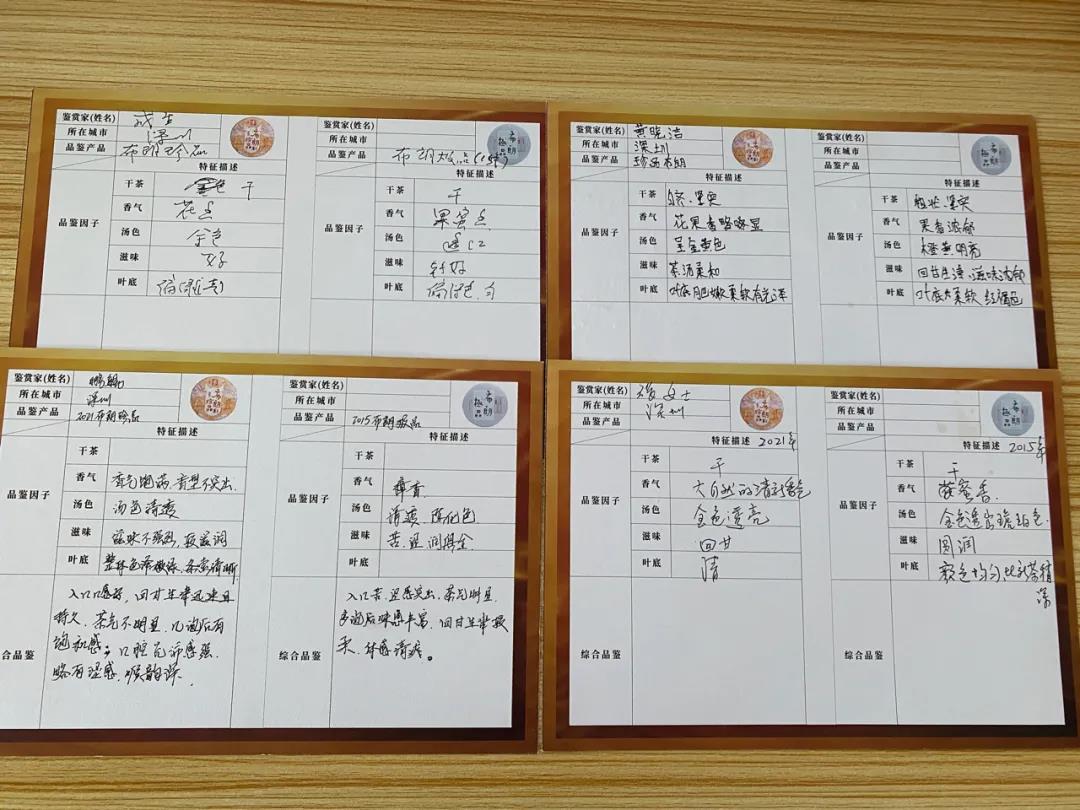 鉴赏家(姓名)
所在城市 深圳
品鉴产品 布朗
特征描述
品鉴因子
干茶 干
香气 花香
汤色 金色
滋味 好
叶底
鉴赏家(姓名)
所在城市
品鉴产品 布朗极品
特征描述
品鉴因子
干茶 干
香气 果蜜香
汤色 透红
滋味 较好
叶底
布朗
极品
鉴赏家(姓名) 黄晓洁
所在城市 深圳
品鉴产品 珍品布朗
特征描述
品鉴因子
干茶 紧实
香气 花果香略略显
汤色 呈金黄色
滋味 茶汤柔和
叶底 叶底肥嫩柔软有光泽
鉴赏家(姓名)
所在城市
品鉴产品
特征描述
品鉴因子
干茶 粗壮、紧实
香气 果香浓郁
汤色 橙黄明亮
滋味 回甘生津、滋味浓郁
叶底 叶底大柔软 红褐色
布朗
极品
鉴赏家(姓名)
所在城市 深圳
品鉴产品 2021布朗珍品
特征描述
品鉴因子
干茶
香气 香气饱满、香型不突出、
汤色 汤色清爽
滋味 滋味不强烈、较滋润
叶底 整体色泽 条索清晰
综合品鉴
回甘生津迅速且
持久、茶气不明显、几泡后有
饱和感、口腔 感强、
略有涩感、喉韵深、
鉴赏家(姓名)
所在城市
品鉴产品 2015布朗极品
特征描述
品鉴因子
干茶
香气 樟香
汤色 清爽、
滋味 苦、涩、润俱全
叶底
综合品鉴
入口苦、涩感突出、茶气明显、
多泡后味感丰富、回甘生津较
天、体感清爽。
布朗
极品
鉴赏家(姓名) 女士
所在城市 深圳
品鉴产品
特征描述 2021年
品鉴因子
干茶 干
香气 大自然的清新香气
汤色 金色透亮
滋味 回甘
叶底 清
综合品鉴
鉴赏家(姓名)
所在城市
品鉴产品
特征描述 2015年
品鉴因子
干茶 干
香气 蜜香
汤色 金色透亮琥珀色
滋味 圆润
叶底 颜色均匀、比新茶稍
深
综合品鉴
布朗
极品